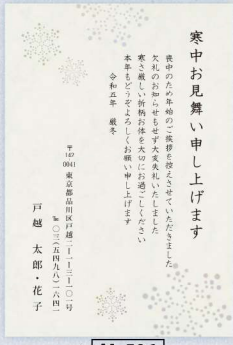 寒中お見舞い申し上げます
喪中のため年始のご挨拶を控えさせていただきました
欠礼のお知らせもせず大変失礼いたしました
寒さ厳しい折柄お体を大切にお過ごしください
本年もどうぞよろしくお願い申し上げます
令和五年 厳冬
〒142-0041 東京都品川区戸越二-一-三-一〇一号
℡〇三(五四九八)一六四一
戸越 太郎・花子